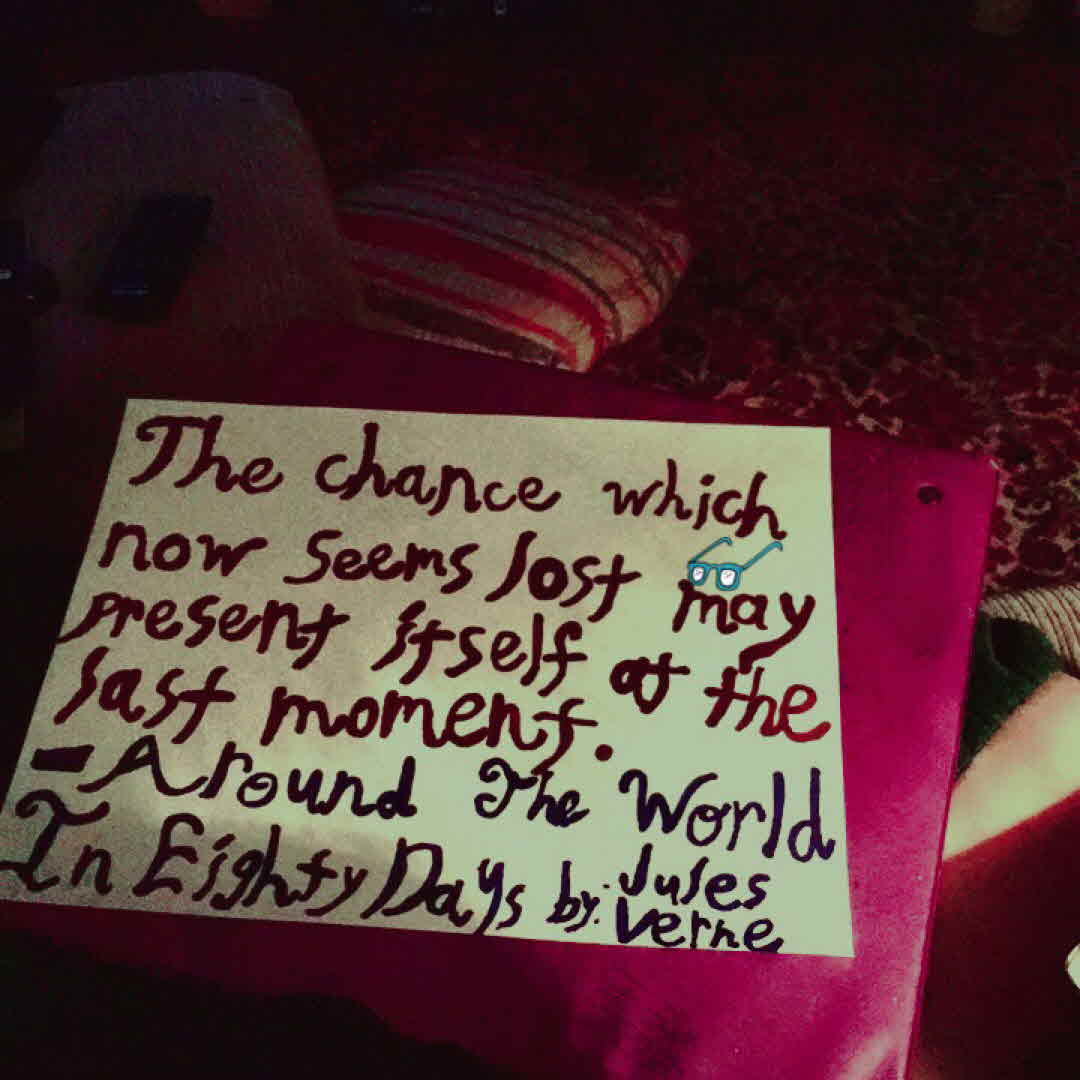 The chance which
now seems lost may
present itself at the
last moment.
- Around The World
In Eighty Days by: Jules
Verne